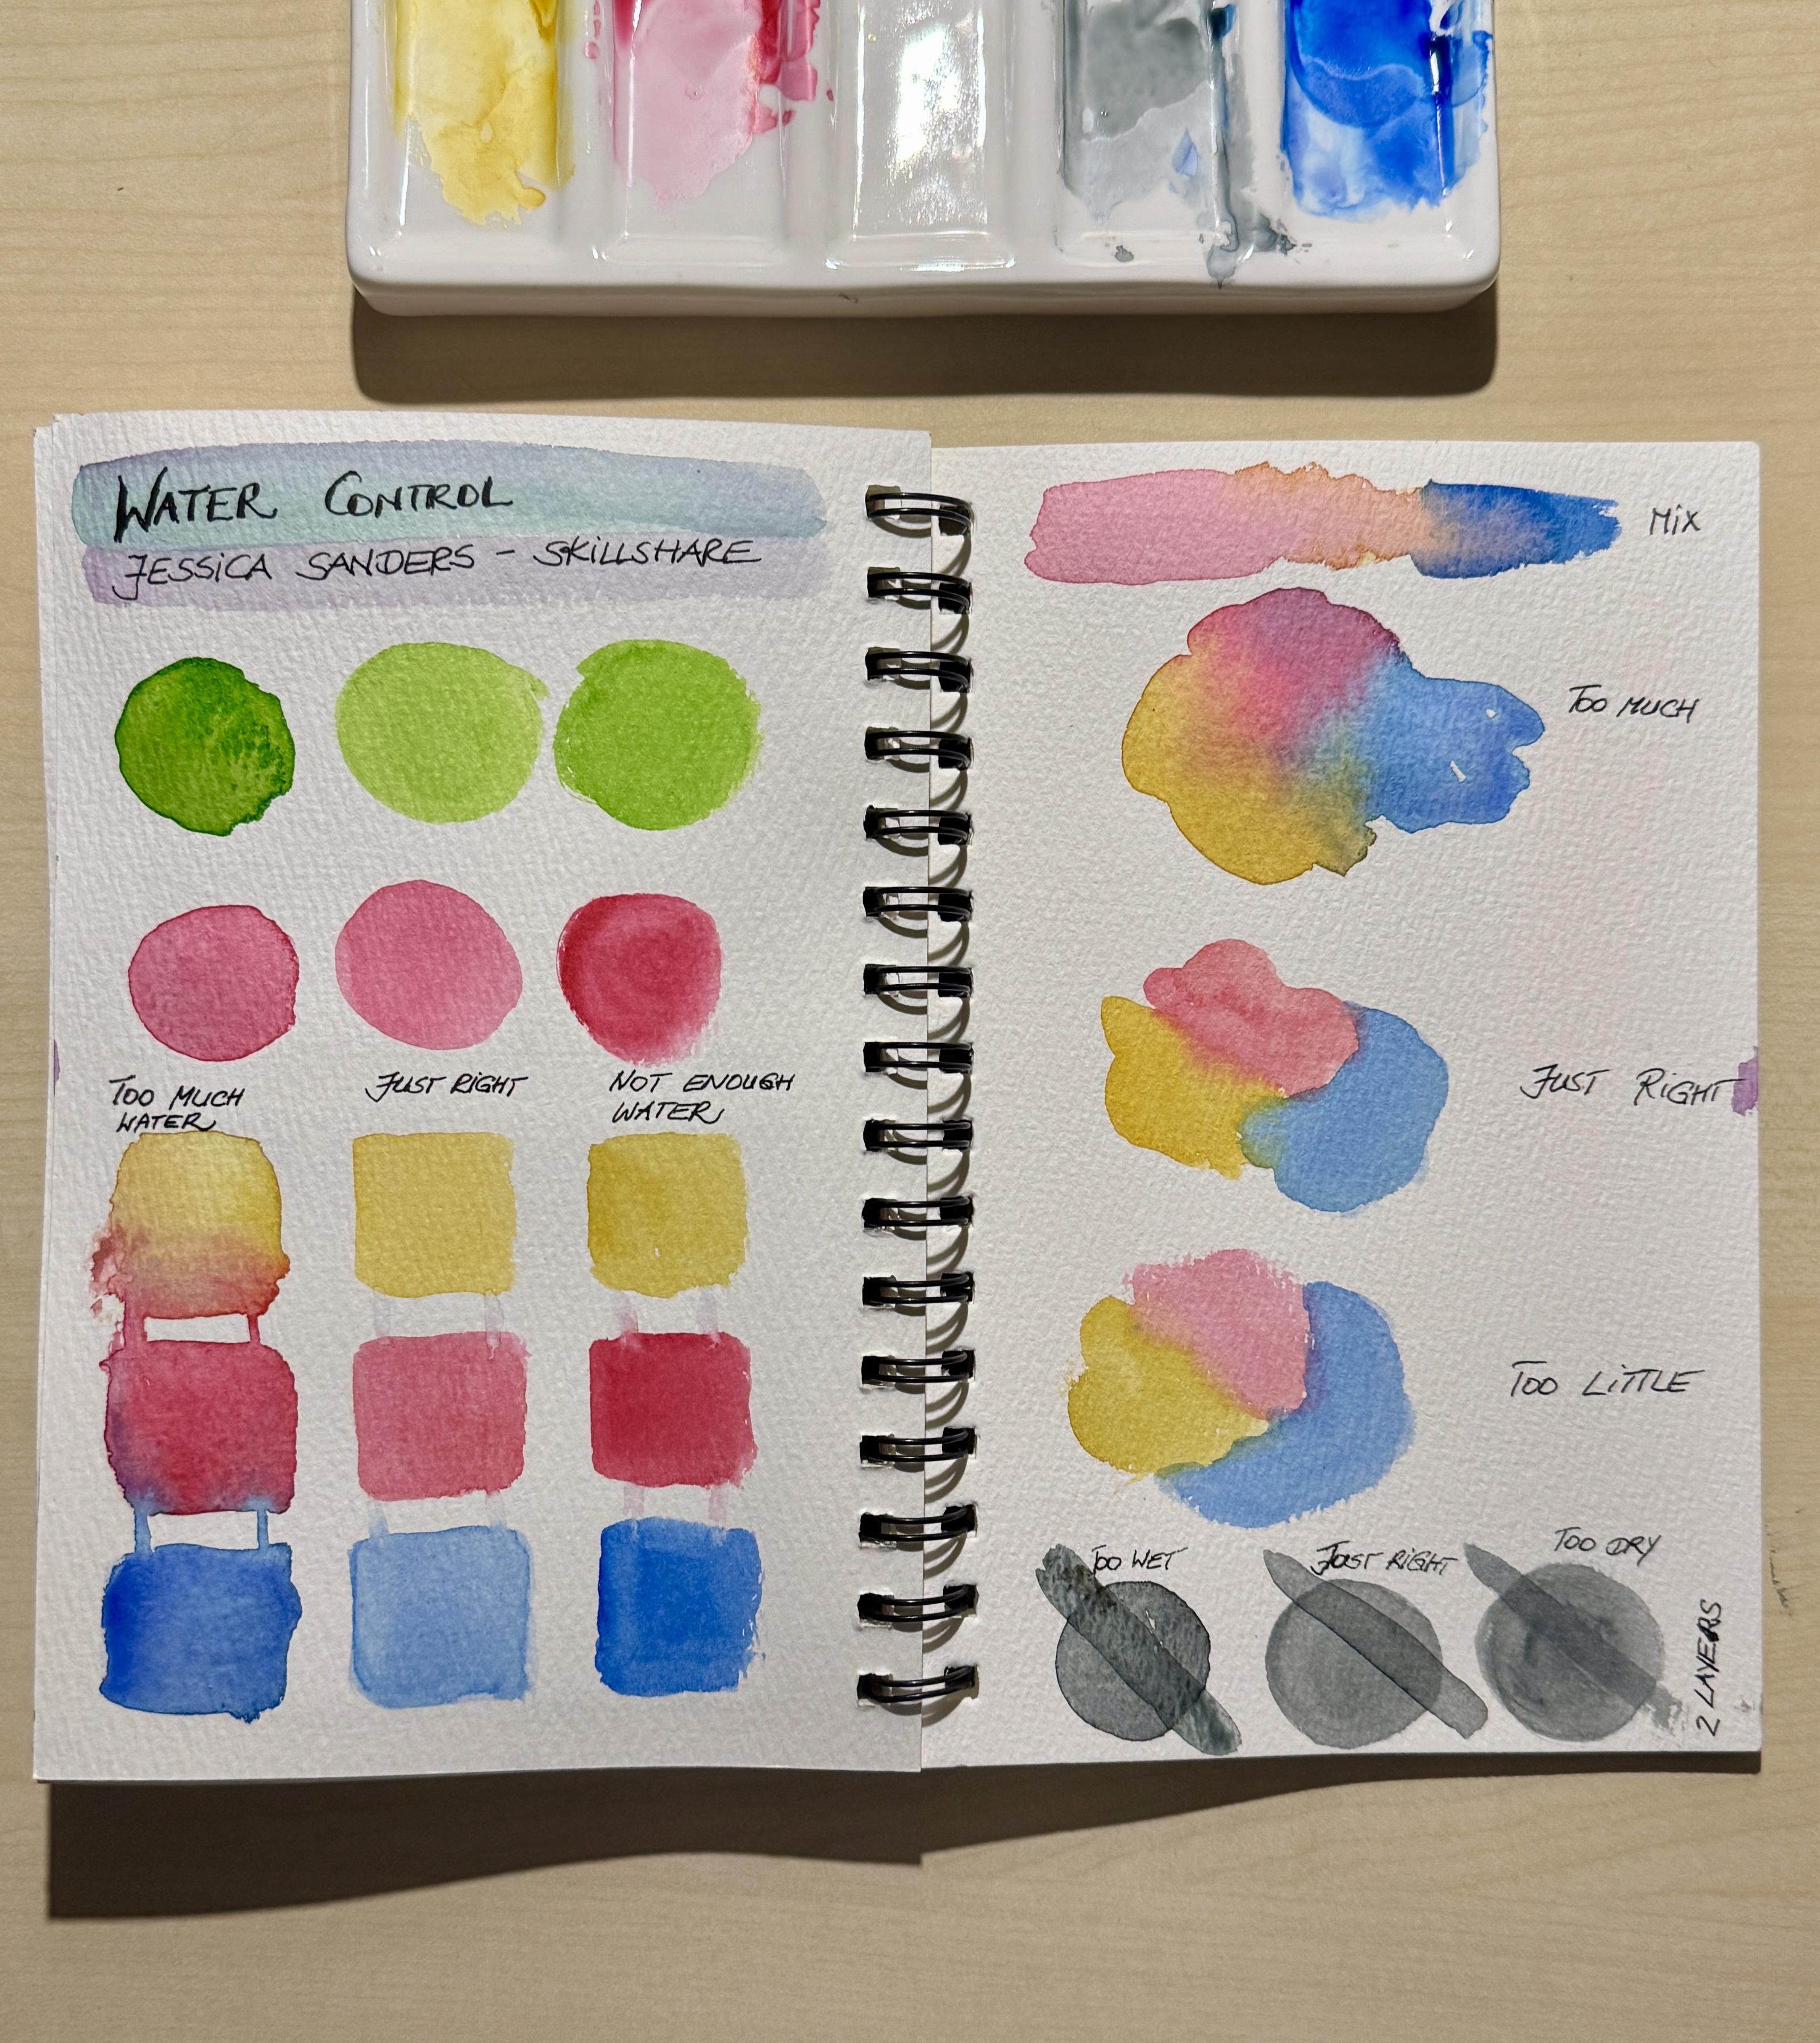 WATER CONTROL
JESSICA SANDERS - SKILLSHARE
TOO MUCH
WATER
JUST RIGHT
NOT ENOUGH
WATER
MIX
TOO MUCH
JUST RIGHT
TOO LITTLE
TOO WET
JUST RIGHT
TOO DRY
2 LAYERS